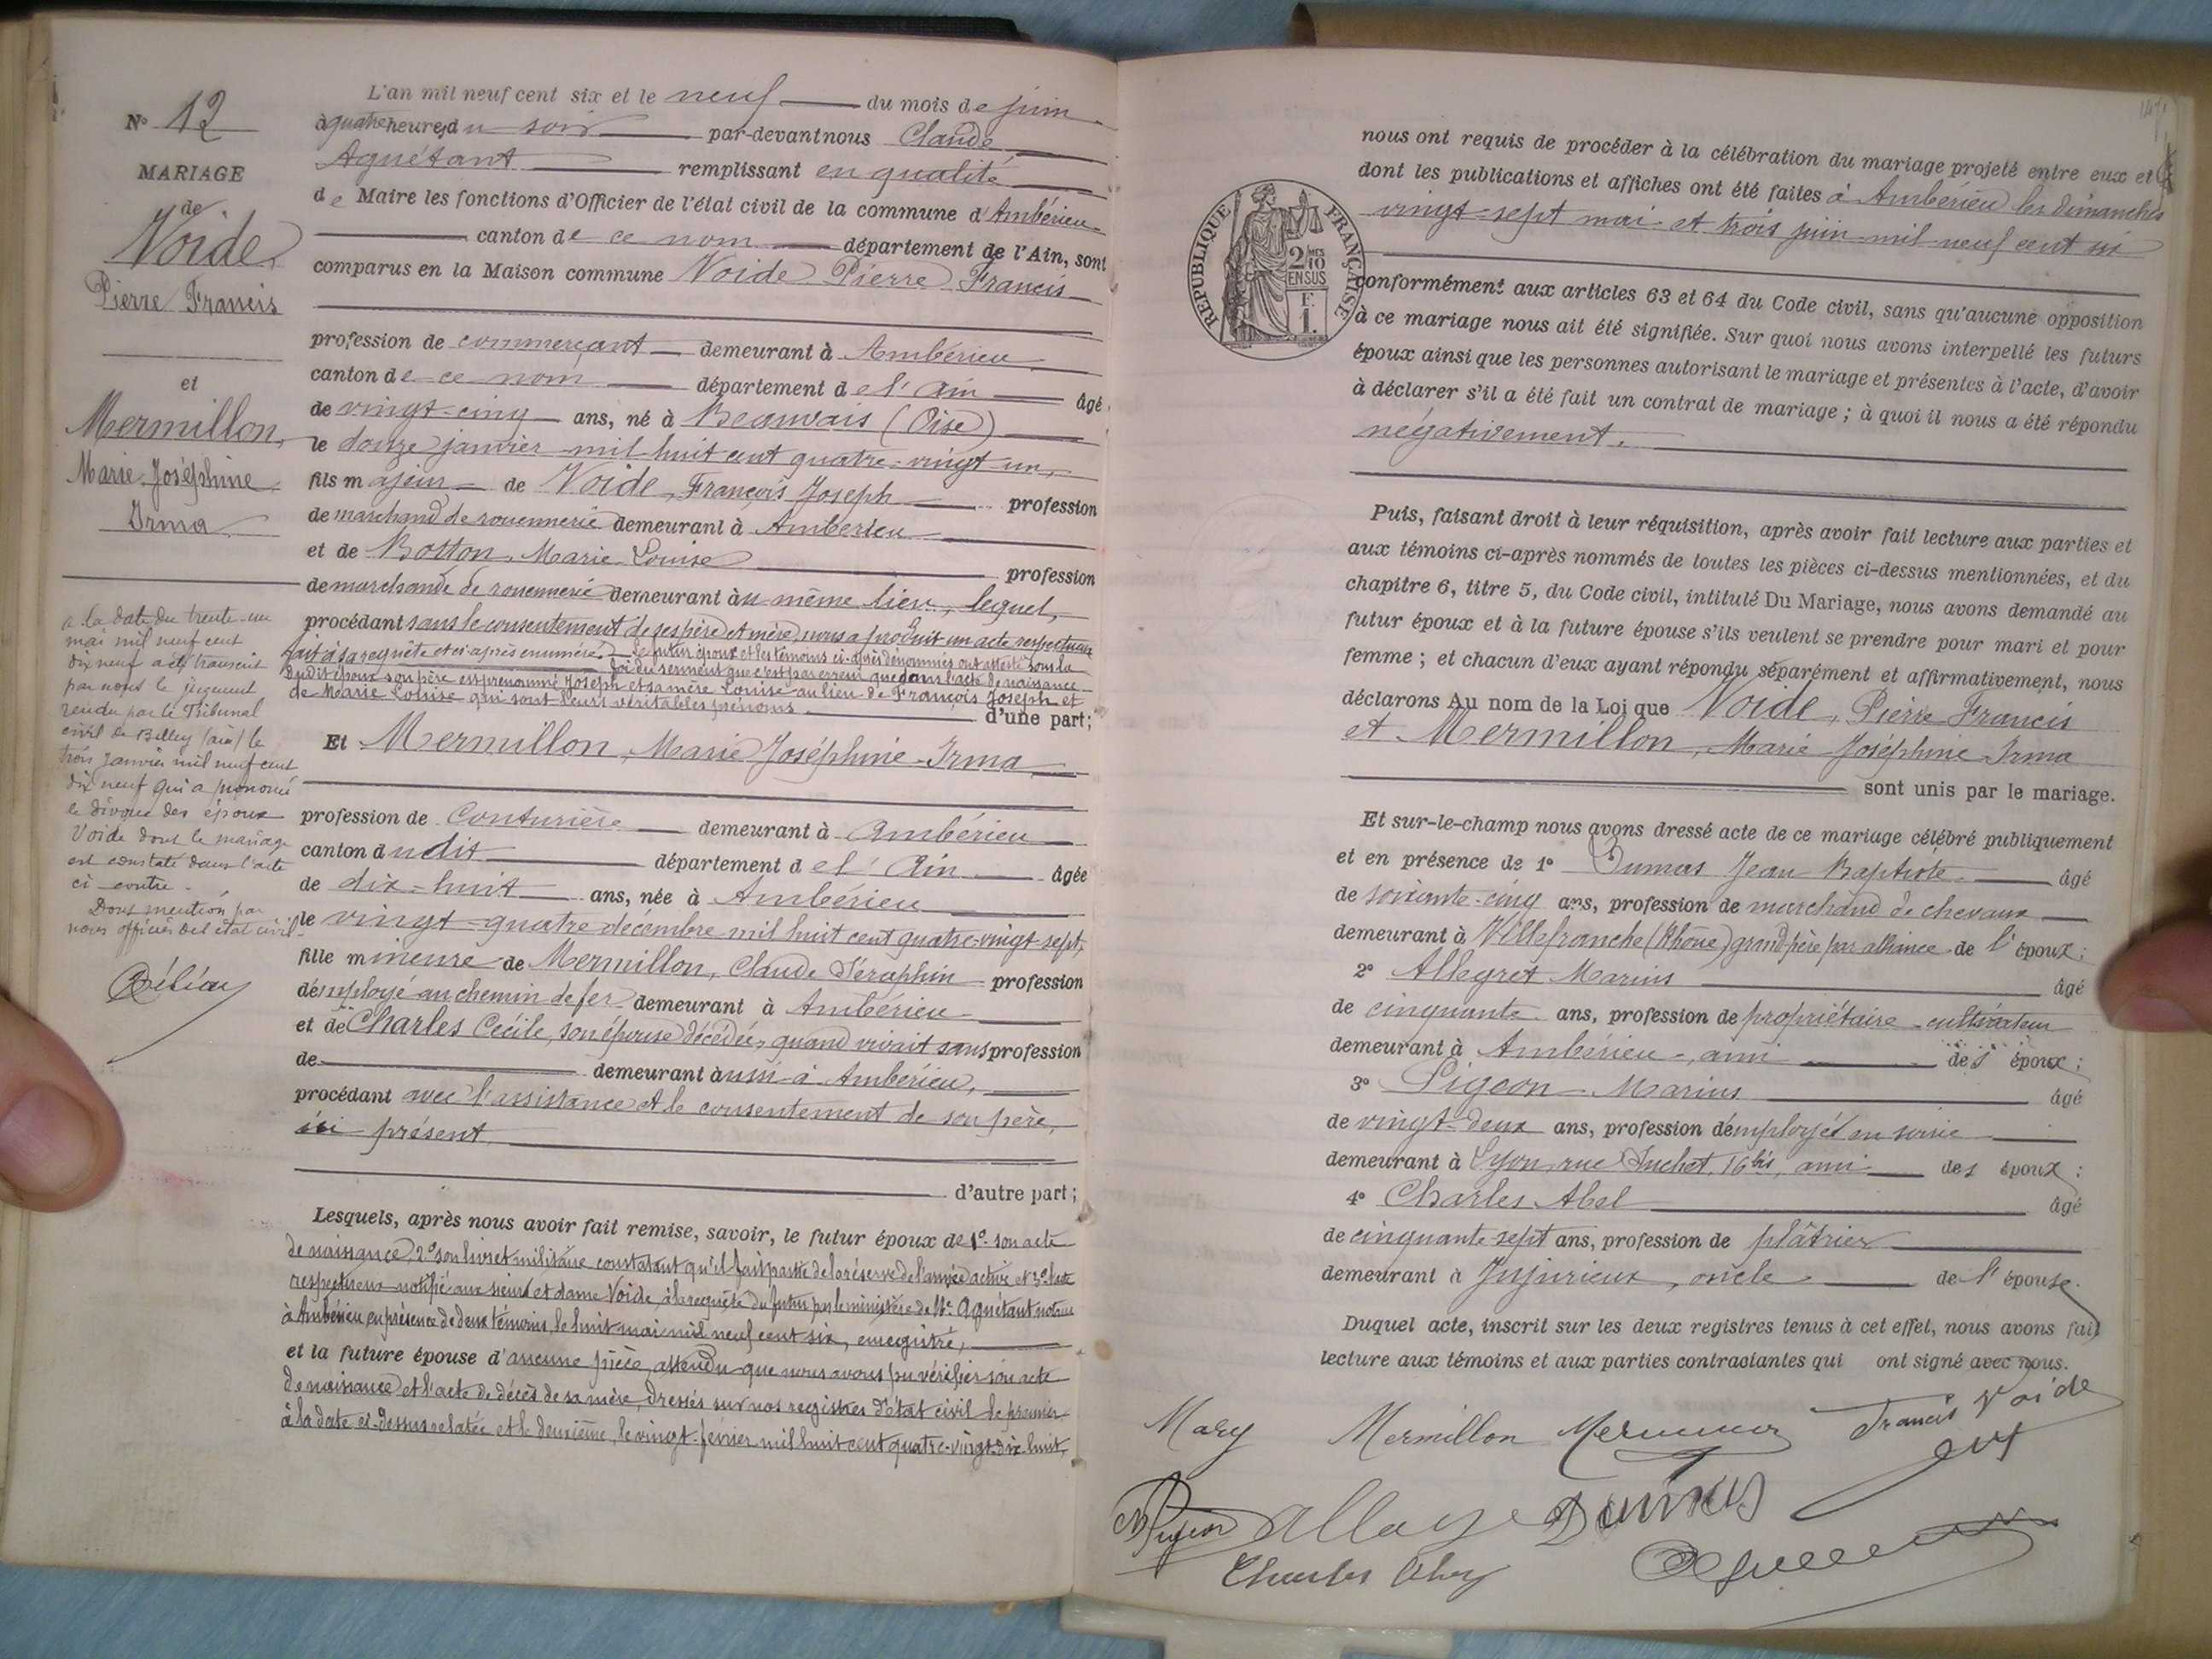 N° 12
MARIAGE
de
Voide,
Pierre Francis
et
Mermillon,
Marie-Joséphine
Irma
a la date du trente-un
mai mil neuf cent
dix neuf a été transcrit
par nous le jugement
rendu par le Tribunal
civil de Belley (ain) le
trois Janvier mil neuf cent
dix neuf qui a prononcé
le divorce des époux
Voide dont le mariage
est constaté dans l'acte
ci-contre.
Dont mention par
nous officier de l'état civil.
L'an mil neuf cent six et le neuf du mois de juin
à quatre heures du soir par-devant nous Claude
Aguétant remplissant en qualité
de Maire les fonctions d'Officier de l'état civil de la commune d'Ambérieu
canton de ce nom département de l'Ain, sont
comparus en la Maison commune Voide Pierre Francis
profession de commerçant demeurant à Ambérieu
canton de ce nom département de l'Ain âgé
de vingt-cinq ans, né à Beauvais (Oise)
le douze janvier mil huit cent quatre-vingt-un,
fils majeur de Voide, François Joseph profession
de marchand de rouennerie demeurant à Ambérieu
et de Botton, Marie-Louise profession
de marchande de rouennerie demeurant au même lieu, lequel,
procédant sans le consentement de ses père et mère, nous a produit un acte respectueux
fait à sa requête et ci-après énuméré. Le futur époux et les témoins ci-après dénommés ont attesté sous la
foi du serment que c'est par erreur que dans l'acte de naissance
dudit époux son père est prénommé Joseph et sa mère Louise au lieu de François Joseph et
de Marie Louise qui sont leurs véritables prénoms d'une part;
Et Mermillon, Marie Joséphine-Irma
profession de Couturière demeurant à Ambérieu
canton dudit département de l'Ain âgée
de dix-huit ans, née à Ambérieu
le vingt-quatre décembre mil huit cent quatre-vingt-sept,
fille mineure de Mermillon, Claude Séraphin profession
d'employé au chemin de fer demeurant à Ambérieu
et de Charles Cécile, son épouse décédée, quand vivait sans profession
de demeurant aussi à Ambérieu,
procédant avec l'assistance et le consentement de son père,
ici présent
d'autre part;
Lesquels, après nous avoir fait remise, savoir, le futur époux de 1°. son acte
de naissance, 2° son livret militaire constatant qu'il fait partie de la réserve de l'armée active et 3° l'acte
respectueux notifié aux sieur et dame Voide, à la requête du futur par le ministère de Me Aguétant notaire
à Ambérieu, en présence de deux témoins, le huit mai mil neuf cent six, enregistré,
et la future épouse d'aucune pièce, attendu que nous avons pu vérifier son acte
de naissance et l'acte de décès de sa mère, dressés sur nos registres d'état civil le premier
à la date ci-dessus relatée et le deuxième, le vingt février mil huit cent quatre-vingt-dix huit,
RÉPUBLIQUE FRANÇAISE
2/10MES
EN SUS
F.
1.
nous ont requis de procéder à la célébration du mariage projeté entre eux et
dont les publications et affiches ont été faites à Ambérieu les dimanches
vingt-sept mai et trois juin mil neuf cent six
conformément aux articles 63 et 64 du Code civil, sans qu'aucune opposition
à ce mariage nous ait été signifiée. Sur quoi nous avons interpellé les futurs
époux ainsi que les personnes autorisant le mariage et présentes à l'acte, d'avoir
à déclarer s'il a été fait un contrat de mariage; à quoi il nous a été répondu
négativement.
Puis, faisant droit à leur réquisition, après avoir fait lecture aux parties et
aux témoins ci-après nommés de toutes les pièces ci-dessus mentionnées, et du
chapitre 6, titre 5, du Code civil, intitulé Du Mariage, nous avons demandé au
futur époux et à la future épouse s'ils veulent se prendre pour mari et pour
femme; et chacun d'eux ayant répondu séparément et affirmativement, nous
déclarons Au nom de la Loi que Voide, Pierre Francis
et Mermillon, Marie Joséphine Irma
sont unis par le mariage.
Et sur-le-champ nous avons dressé acte de ce mariage célébré publiquement
et en présence de 1° Dumas Jean Baptiste âgé
de soixante-cinq ans, profession de marchand de chevaux
demeurant à Villefranche (Rhône) grand-père par alliance de l'époux;
2° Allegret Marius âgé
de cinquante ans, profession de propriétaire-cultivateur
demeurant à Ambérieu, ami des époux;
3° Pigeon Marius âgé
de vingt-deux ans, profession d'employé en soirie
demeurant à Lyon, rue Suchet, 16bis, ami des époux;
4° Charles Abel âgé
de cinquante-sept ans, profession de plâtrier
demeurant à Jujurieux, oncle de l'épouse.
Duquel acte, inscrit sur les deux registres tenus à cet effet, nous avons fait
lecture aux témoins et aux parties contractantes qui ont signé avec nous.
Mary Mermillon Francis Voide
Dumas
Charles Abel